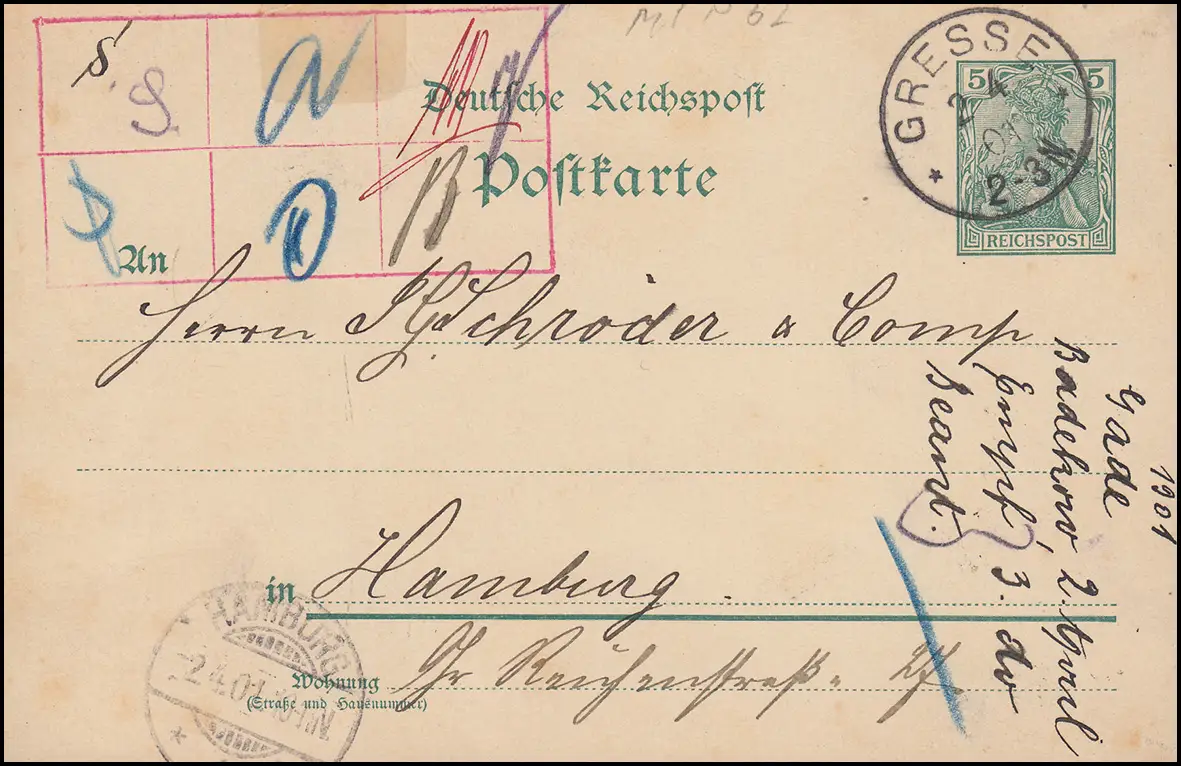 Mi N 62
Deutsche Reichspost
Postkarte
GRESSE
2 4
01
2-3N
5 5
REICHSPOST
An
Herrn Schröder & Comp
in Hamburg.
Wohnung
(Straße und Hausnummer)
Gr Reichenstraße
HAMBURG
-2.4.01
1901
Gade
Badekow, 2. April
Empf, 3. do
Beant.